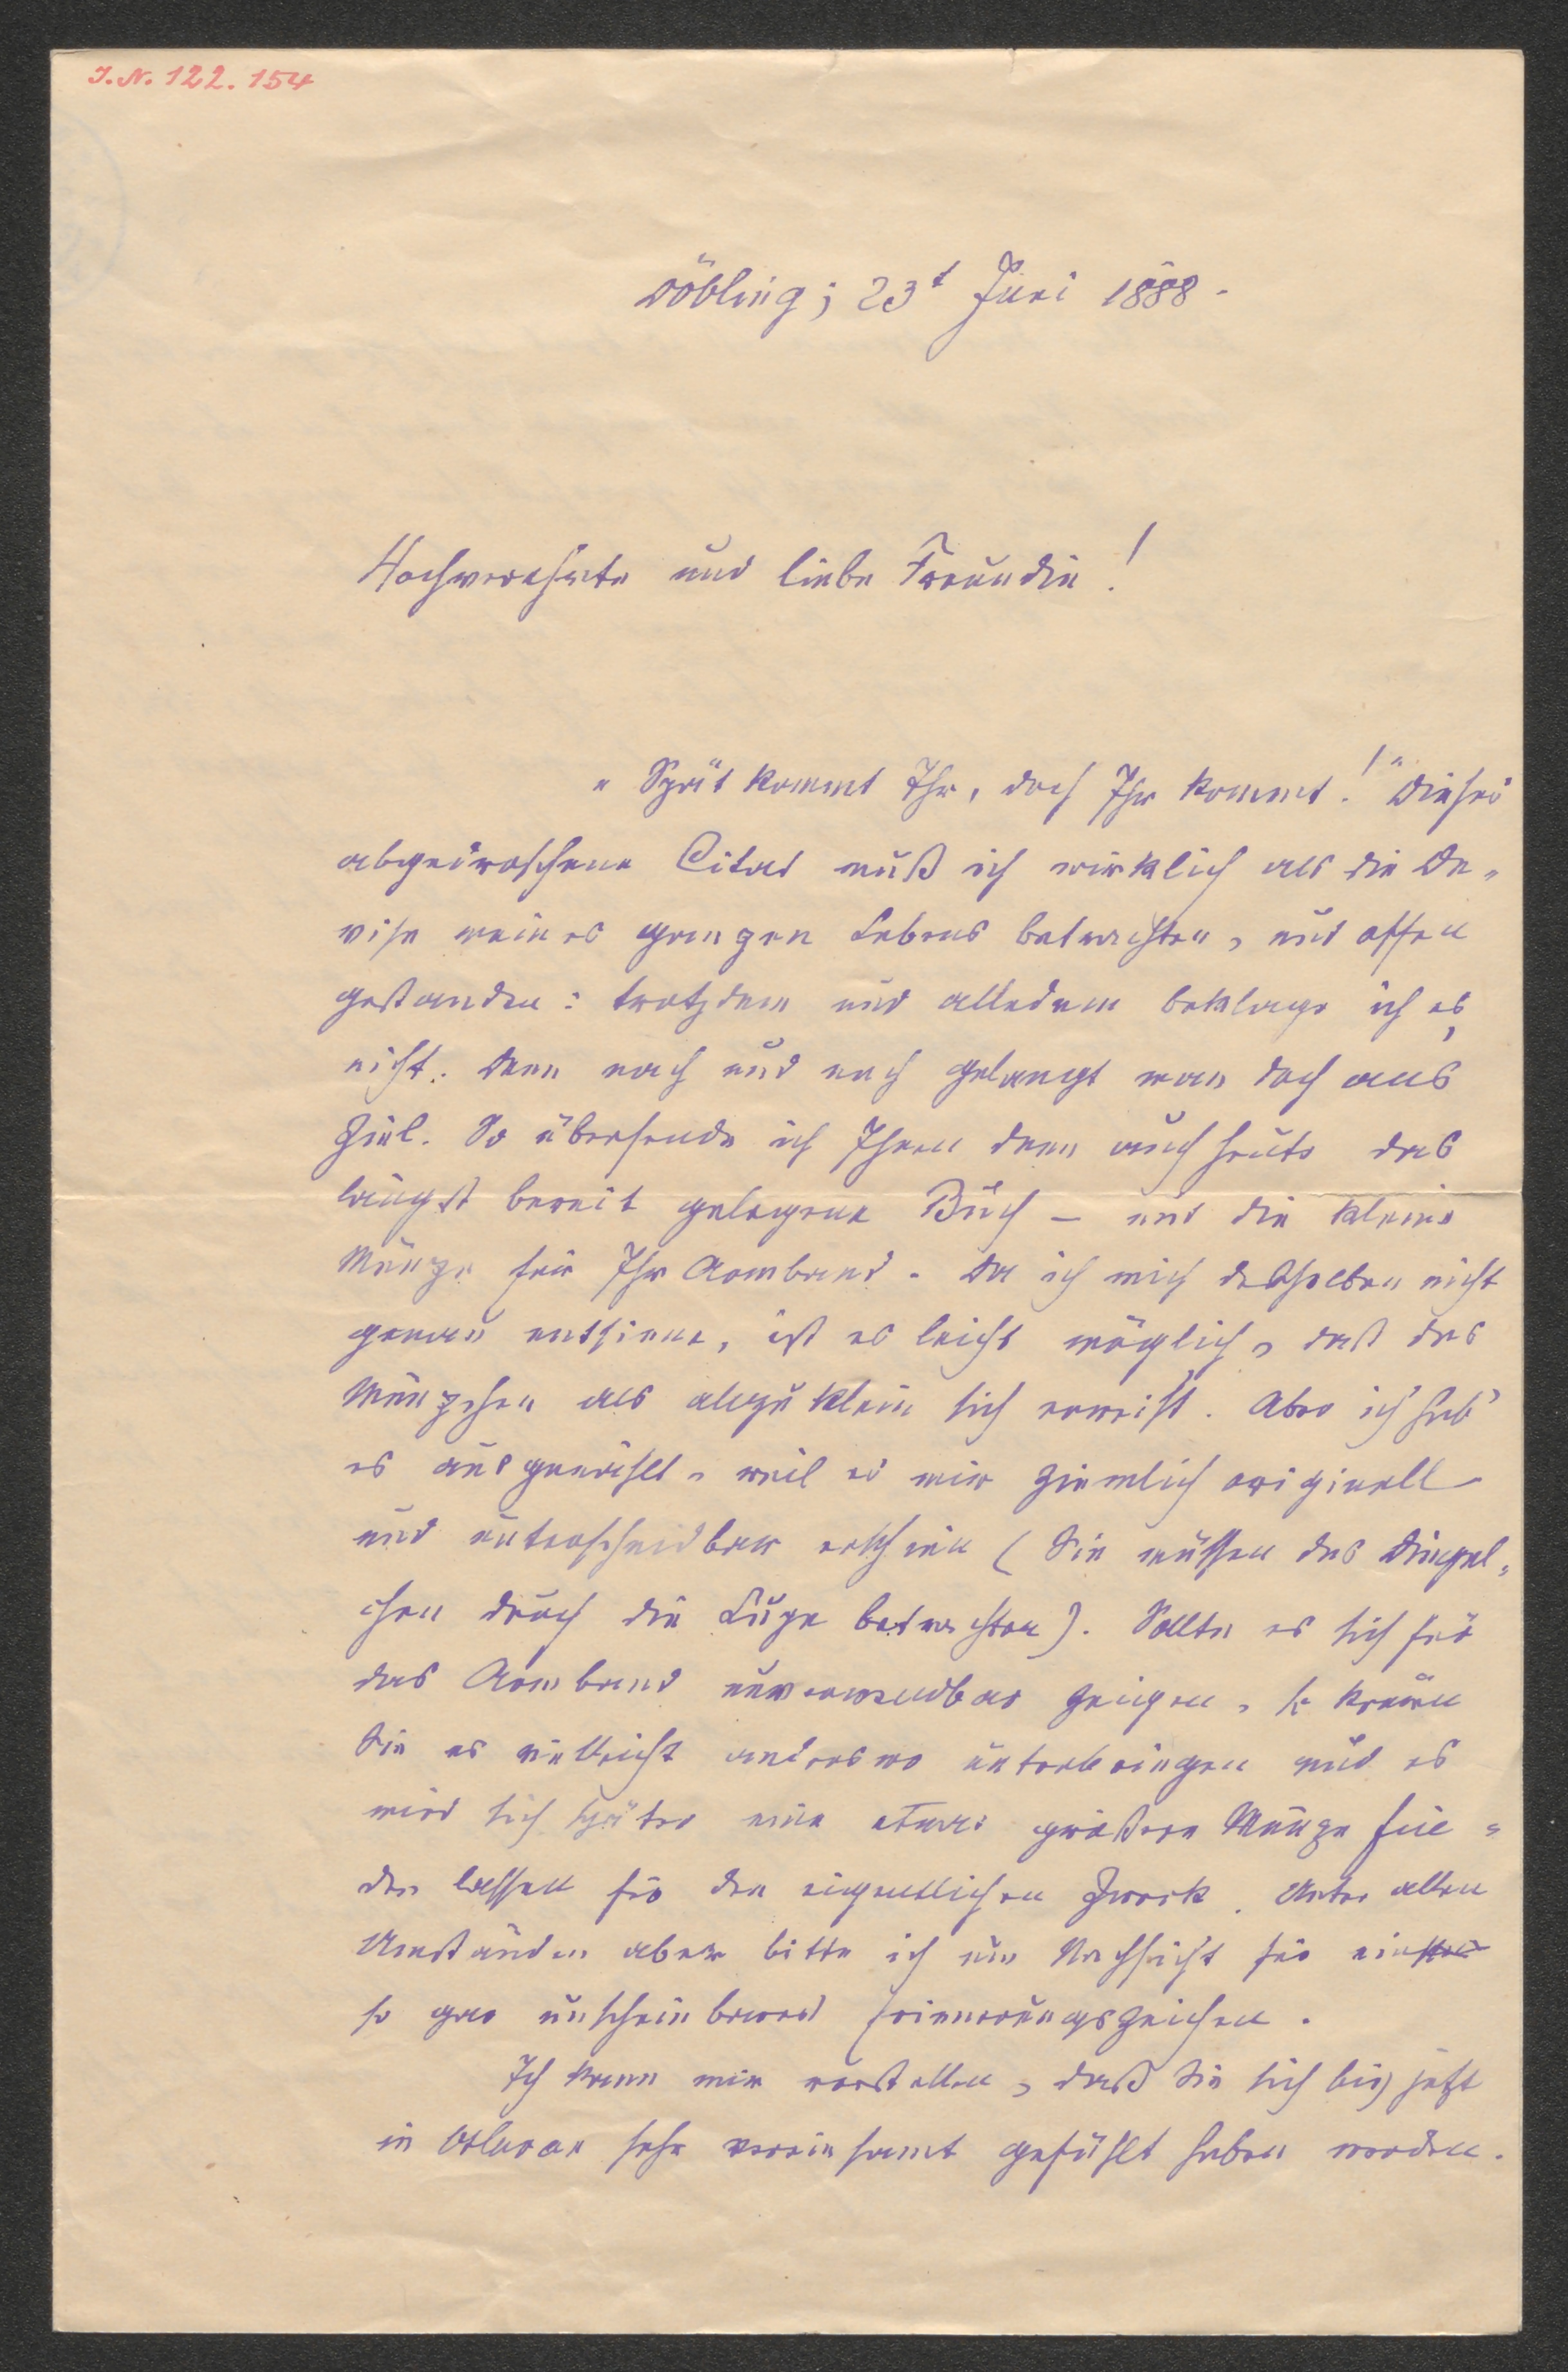 I.N. 122.154
Döbling; 23t Juni 1888.
Hochverehrte und liebe Freundin!
"Spät kommt Ihr, doch Ihr kommt!" Dieses
abgedroschene Citat muß ich wirklich als die De-
vise meines ganzen Lebens betrachten, und offen
gestanden: trotzdem und alledem beklage ich es
nicht. Denn nach und nach gelangt man doch ans
Ziel. So übersende ich Ihnen denn auch heute das
längst bereit gelegene Buch – und die kleine
Münze für Ihr Armband. Da ich mich desselben nicht
genau entsinne, ist es leicht möglich, daß das
Münzchen als allzu klein sich erweist. Aber ich hab'
es ausgewählt, weil es mir ziemlich originell
und unterscheidbar erschien (Sie müssen das Dingel-
chen durch die Lupe betrachten). Sollte es sich für
das Armband unverwendbar zeigen, so können
Sie es vielleicht anderswo unterbringen und es
wird sich später eine etwas größere Münze fin-
den lassen für den eigentlichen Zweck. Unter allen
Umständen aber bitte ich um Nachsicht für ein
so gar unscheinbares Erinnerungszeichen.
Ich kann mir vorstellen, daß Sie sich bis jetzt
in Oslavan sehr vereinsamt gefühlt haben werden.